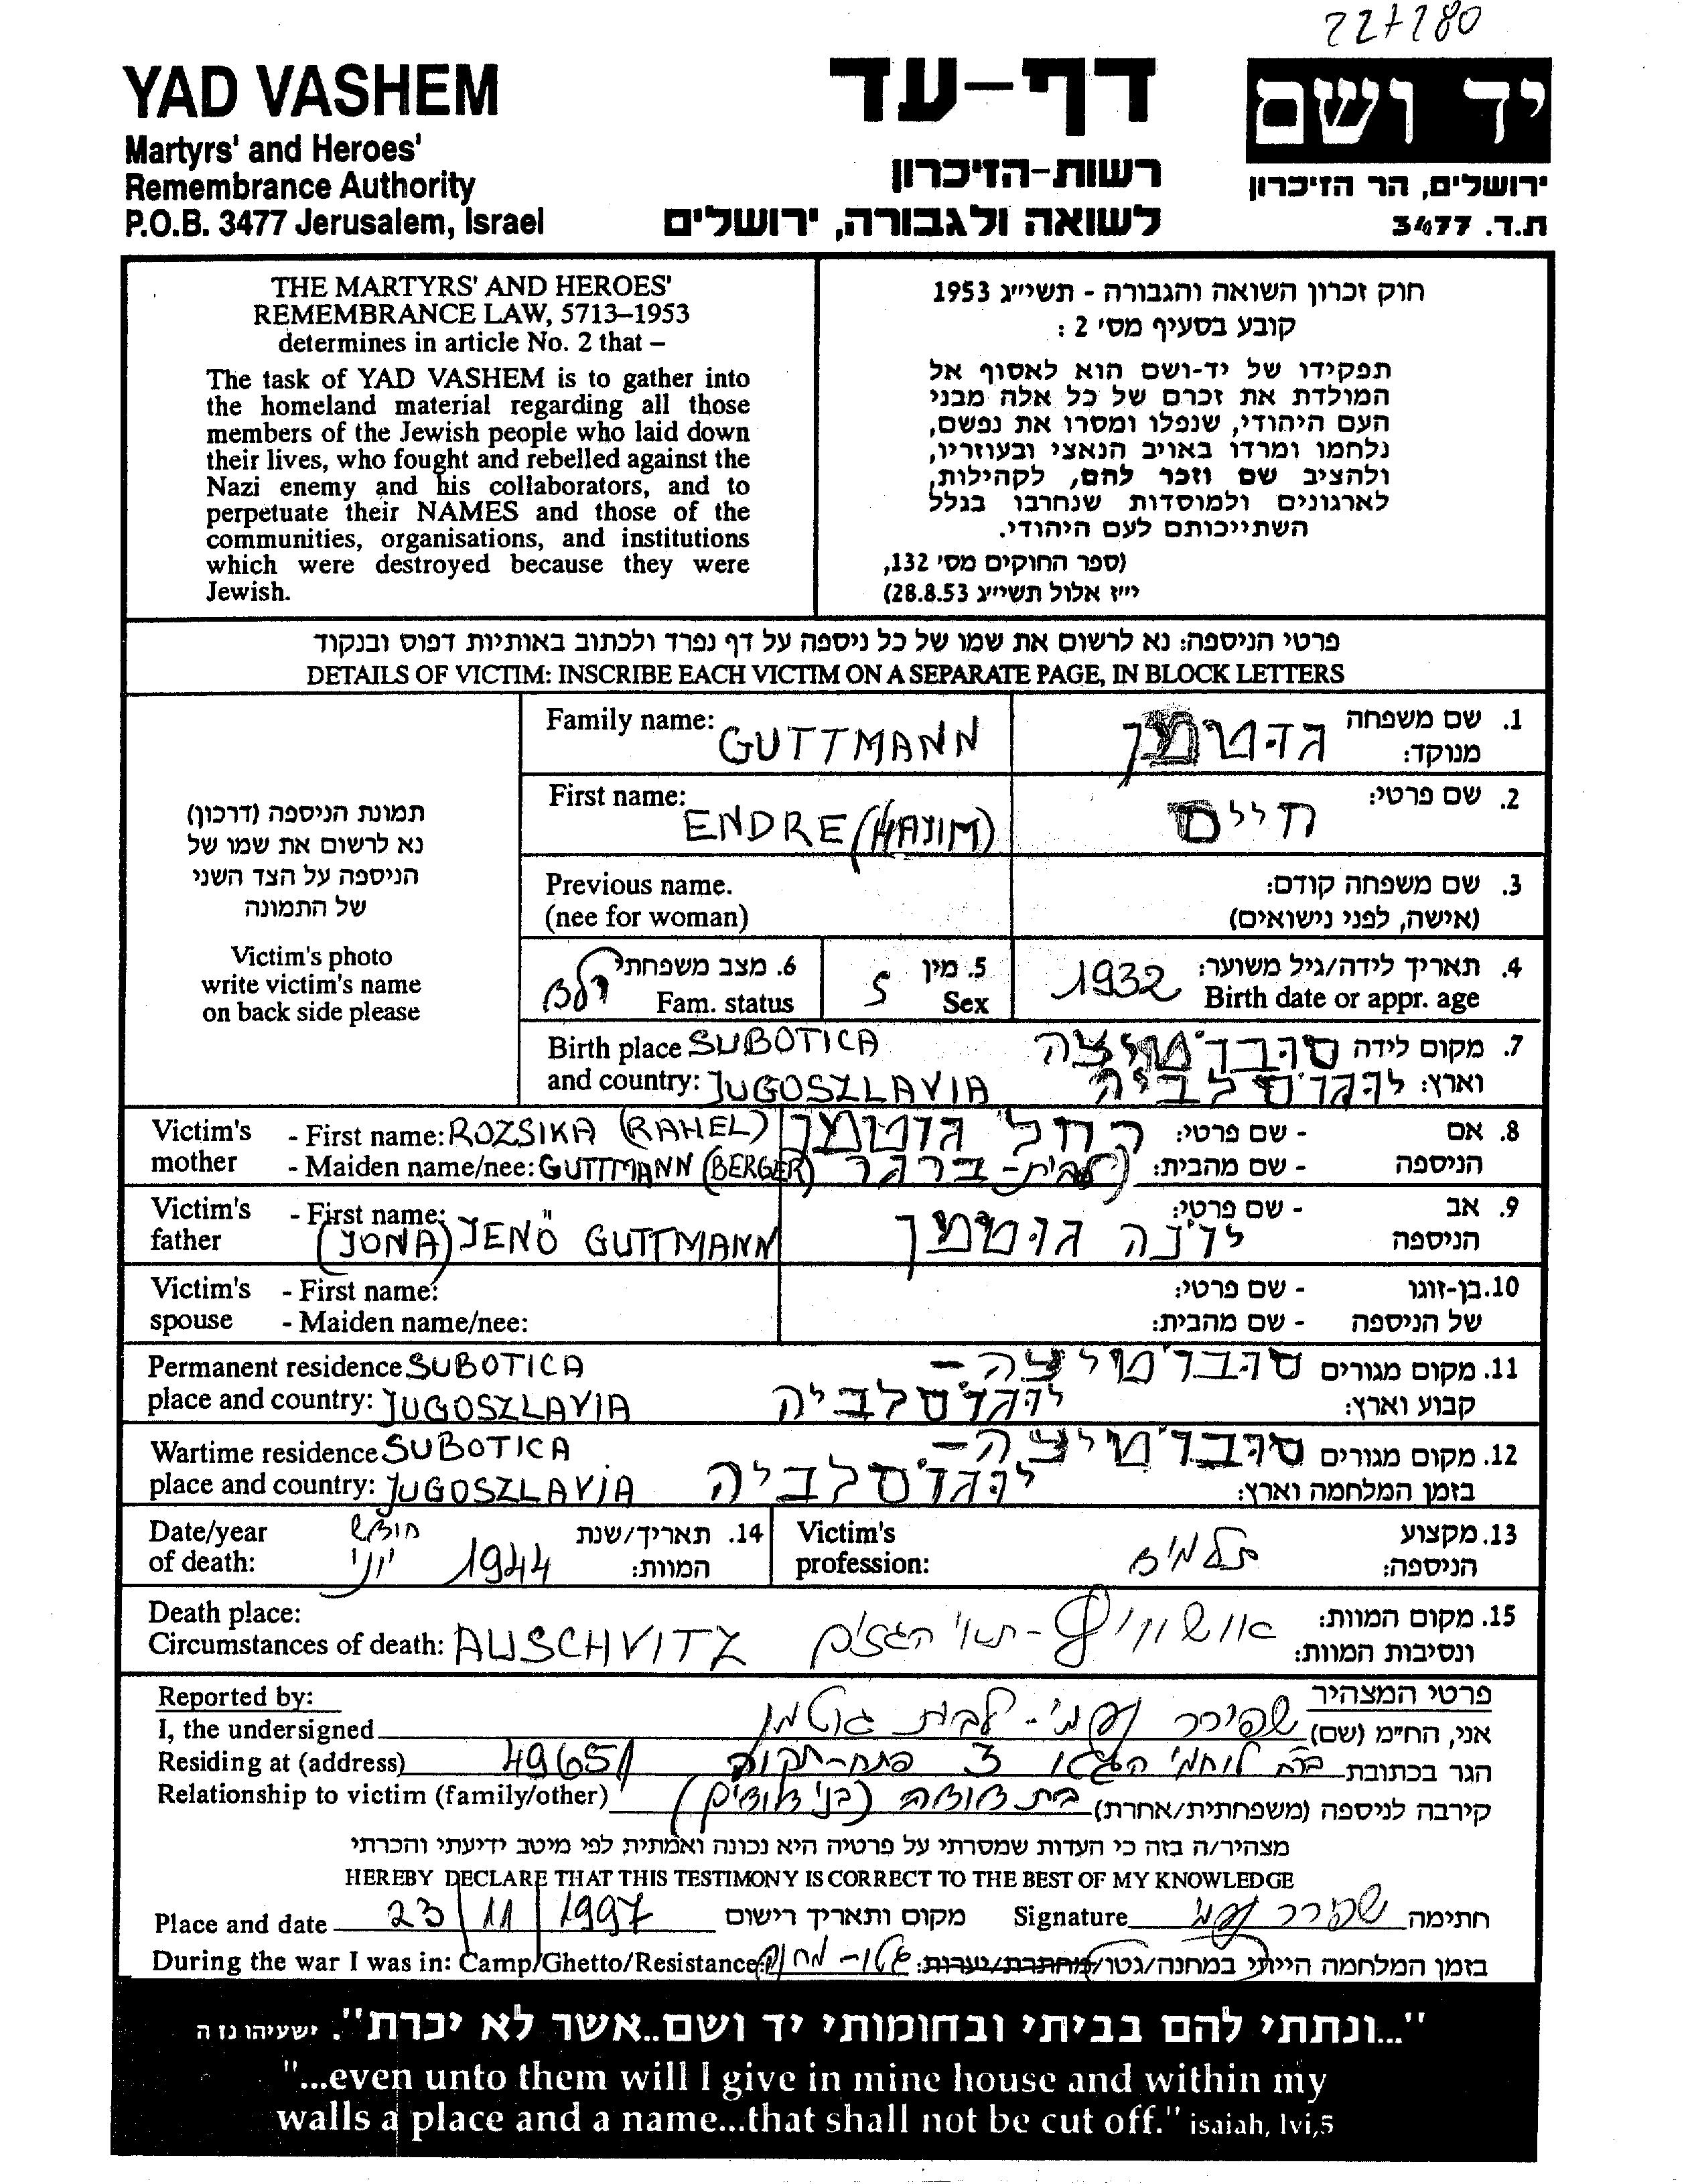 227280
YAD VASHEM
Martyrs' and Heroes'
Remembrance Authority
P.O.B. 3477 Jerusalem, Israel
דף-עד
רשות-הזיכרון
לשואה ולגבורה, ירושלים
יד ושם
ירושלים, הר הזיכרון
ת.ד. 3477
THE MARTYRS' AND HEROES'
REMEMBRANCE LAW, 5713–1953
determines in article No. 2 that –
The task of YAD VASHEM is to gather into
the homeland material regarding all those
members of the Jewish people who laid down
their lives, who fought and rebelled against the
Nazi enemy and his collaborators, and to
perpetuate their NAMES and those of the
communities, organisations, and institutions
which were destroyed because they were
Jewish.
חוק זכרון השואה והגבורה - תשי״ג 1953
קובע בסעיף מס׳ 2 :
תפקידו של יד-ושם הוא לאסוף אל
המולדת את זכרם של כל אלה מבני
העם היהודי, שנפלו ומסרו את נפשם,
נלחמו ומרדו באויב הנאצי ובעוזריו,
ולהציב שם וזכר להם, לקהילות,
לארגונים ולמוסדות שנחרבו בגלל
השתייכותם לעם היהודי.
(ספר החוקים מס׳ 132,
י״ז אלול תשי״ג 28.8.53)
פרטי הניספה: נא לרשום את שמו של כל ניספה על דף נפרד ולכתוב באותיות דפוס ובנקוד
DETAILS OF VICTIM: INSCRIBE EACH VICTIM ON A SEPARATE PAGE, IN BLOCK LETTERS
תמונת הניספה (דרכון)
נא לרשום את שמו של
הניספה על הצד השני
של התמונה
Victim's photo
write victim's name
on back side please
Family name: GUTTMANN
1. שם משפחה מנוקד: גוטמן
First name: ENDRE (HAJIM)
2. שם פרטי: חיים
Previous name.
(nee for woman)
3. שם משפחה קודם:
(אישה, לפני נישואים)
4. תאריך לידה/גיל משוער: 1932
Birth date or appr. age
5. מין
Sex
6. מצב משפחתי ילד
Fam. status
Birth place SUBOTICA
and country: JUGOSZLAVIA
7. מקום לידה סובוטיצה
וארץ: יוגוסלביה
Victim's mother
- First name: ROZSIKA (RAHEL)
- Maiden name/nee: GUTTMANN (BERGER)
8. אם הניספה
- שם פרטי: רחל גוטמן
- שם מהבית: (לבית- ברגר
Victim's father
- First name: (JONA) JENÖ GUTTMANN
9. אב הניספה
- שם פרטי: יונה גוטמן
Victim's spouse
- First name:
- Maiden name/nee:
10. בן-זוגו של הניספה
- שם פרטי:
- שם מהבית:
Permanent residence SUBOTICA
place and country: JUGOSZLAVIA
11. מקום מגורים סובוטיצה -
קבוע וארץ: יוגוסלביה
Wartime residence SUBOTICA
place and country: JUGOSZLAVIA
12. מקום מגורים סובוטיצה -
בזמן המלחמה וארץ: יוגוסלביה
Date/year
of death:
14. תאריך/שנת המוות: 1944 חודש יוני
Victim's
profession:
13. מקצוע הניספה: תלמיד
Death place:
Circumstances of death: AUSCHVITZ
15. מקום המוות: אושוויץ - תאי הגזים
ונסיבות המוות:
Reported by:
פרטי המצהיר
I, the undersigned
אני, הח״מ (שם) שפירר נעמי - לבית גוטמן
Residing at (address)
הגר בכתובת לוחמי הגטו 3 פתח-תקוה 49651
Relationship to victim (family/other)
קירבה לניספה (משפחתית/אחרת) בת דודה (בני דודים)
מצהיר/ה בזה כי העדות שמסרתי על פרטיה היא נכונה ואמתית לפי מיטב ידיעתי והכרתי
HEREBY DECLARE THAT THIS TESTIMONY IS CORRECT TO THE BEST OF MY KNOWLEDGE
Place and date 23/11/1997 מקום ותאריך רישום
Signature שפירר נעמי חתימה
During the war I was in: Camp/Ghetto/Resistance
בזמן המלחמה הייתי במחנה/גטו/מחתרת/יערות: גטו - מחנה
"...ונתתי להם בביתי ובחומותי יד ושם..אשר לא יכרת". ישעיהו נז ה
"...even unto them will I give in mine house and within my
walls a place and a name...that shall not be cut off." isaiah, lvi,5